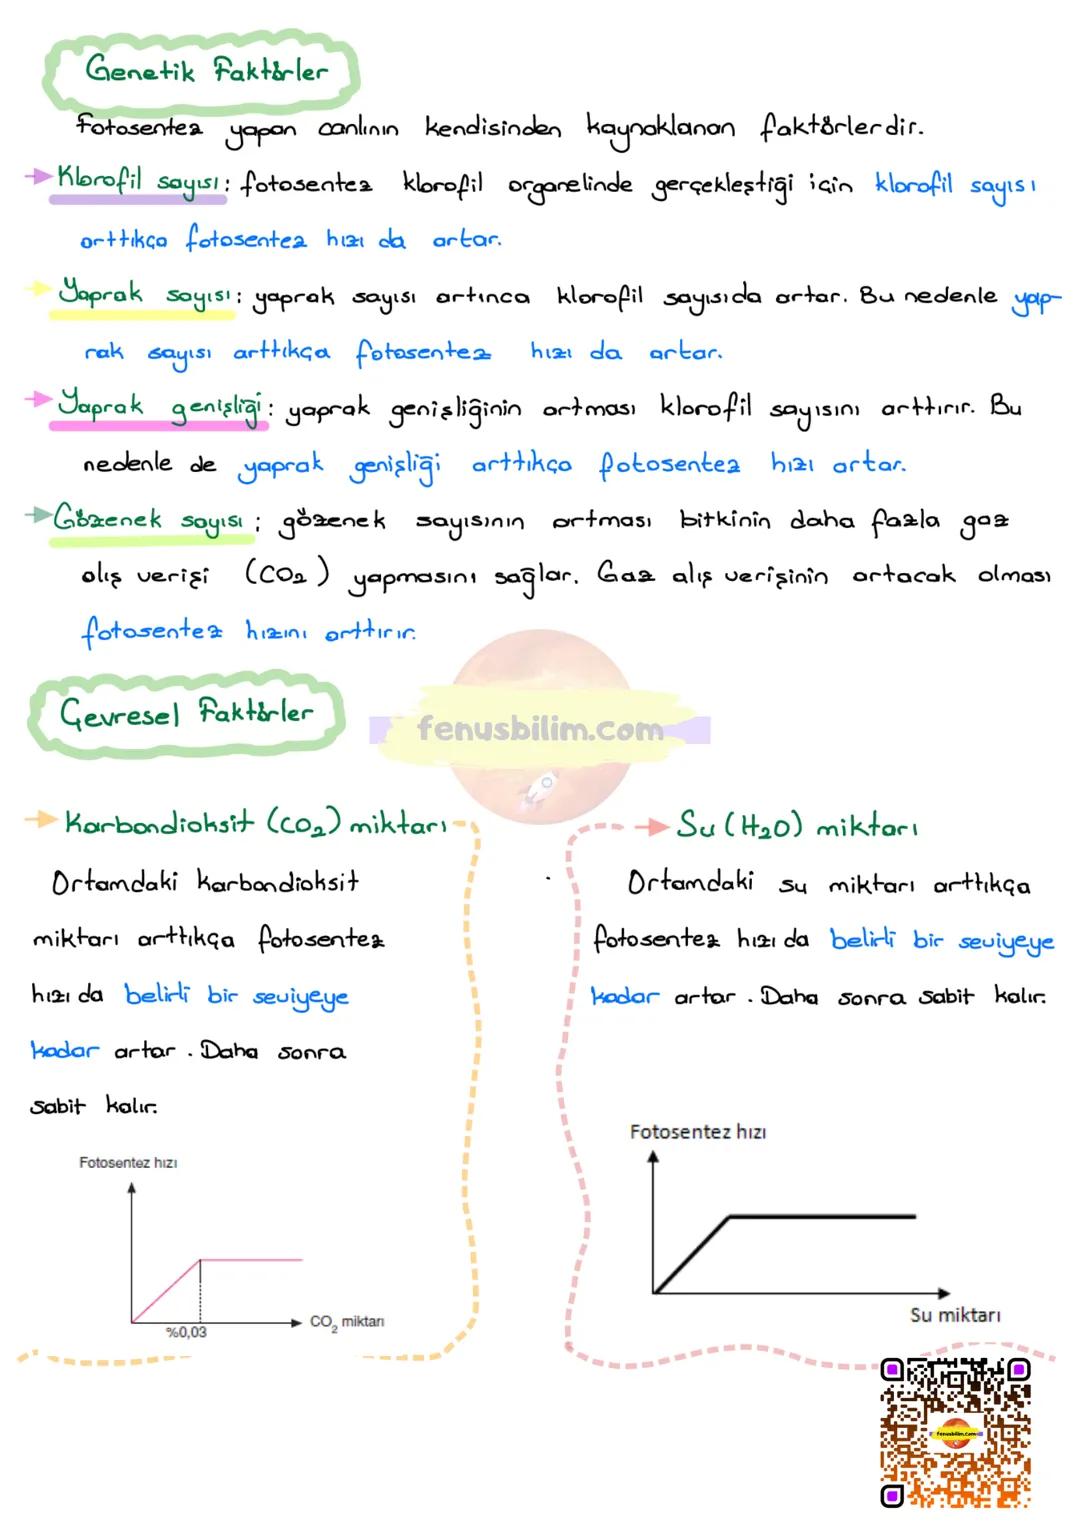 Genetik Faktörler
Fotosentez yapan canlının kendisinden kaynaklanan faktörlerdir.
Klorofil sayısı: fotosentez klorofil organelinde gerçekleştiği için klorofil sayısı
arttıkça fotosentez hızı da artar.
Yaprak sayısı: yaprak sayısı artınca klorofil sayısıda artar. Bu nedenle yap-
rak sayısı arttıkça fotosentez hızı da artar.
Yaprak genişliği: yaprak genişliğinin artması klorofil sayısını arttırır. Bu
nedenle de yaprak genişliği arttıkça fotosentez hızı artar.
Gözenek sayısı: gözenek sayısının artması bitkinin daha fazla gaz
alış verişi (CO₂) yapmasını sağlar. Gaz alış verişinin artacak olması
fotosentez hızını arttırır.
Çevresel Faktörler
fenusbilim.com
Karbondioksit (CO₂) miktarı
Ortamdaki karbondioksit
miktarı arttıkça fotosentez
hızı da belirli bir seviyeye
kadar artar. Daha sonra
sabit kalır.
Fotosentez hızı
%0,03
CO₂ miktarı
Su (H₂O) miktarı
Ortamdaki su miktarı arttıkça
fotosentez hızı da belirli bir seviyeye
kadar artar. Daha sonra sabit kalır.
Fotosentez hızı
Su miktarı
fenusbilim.com